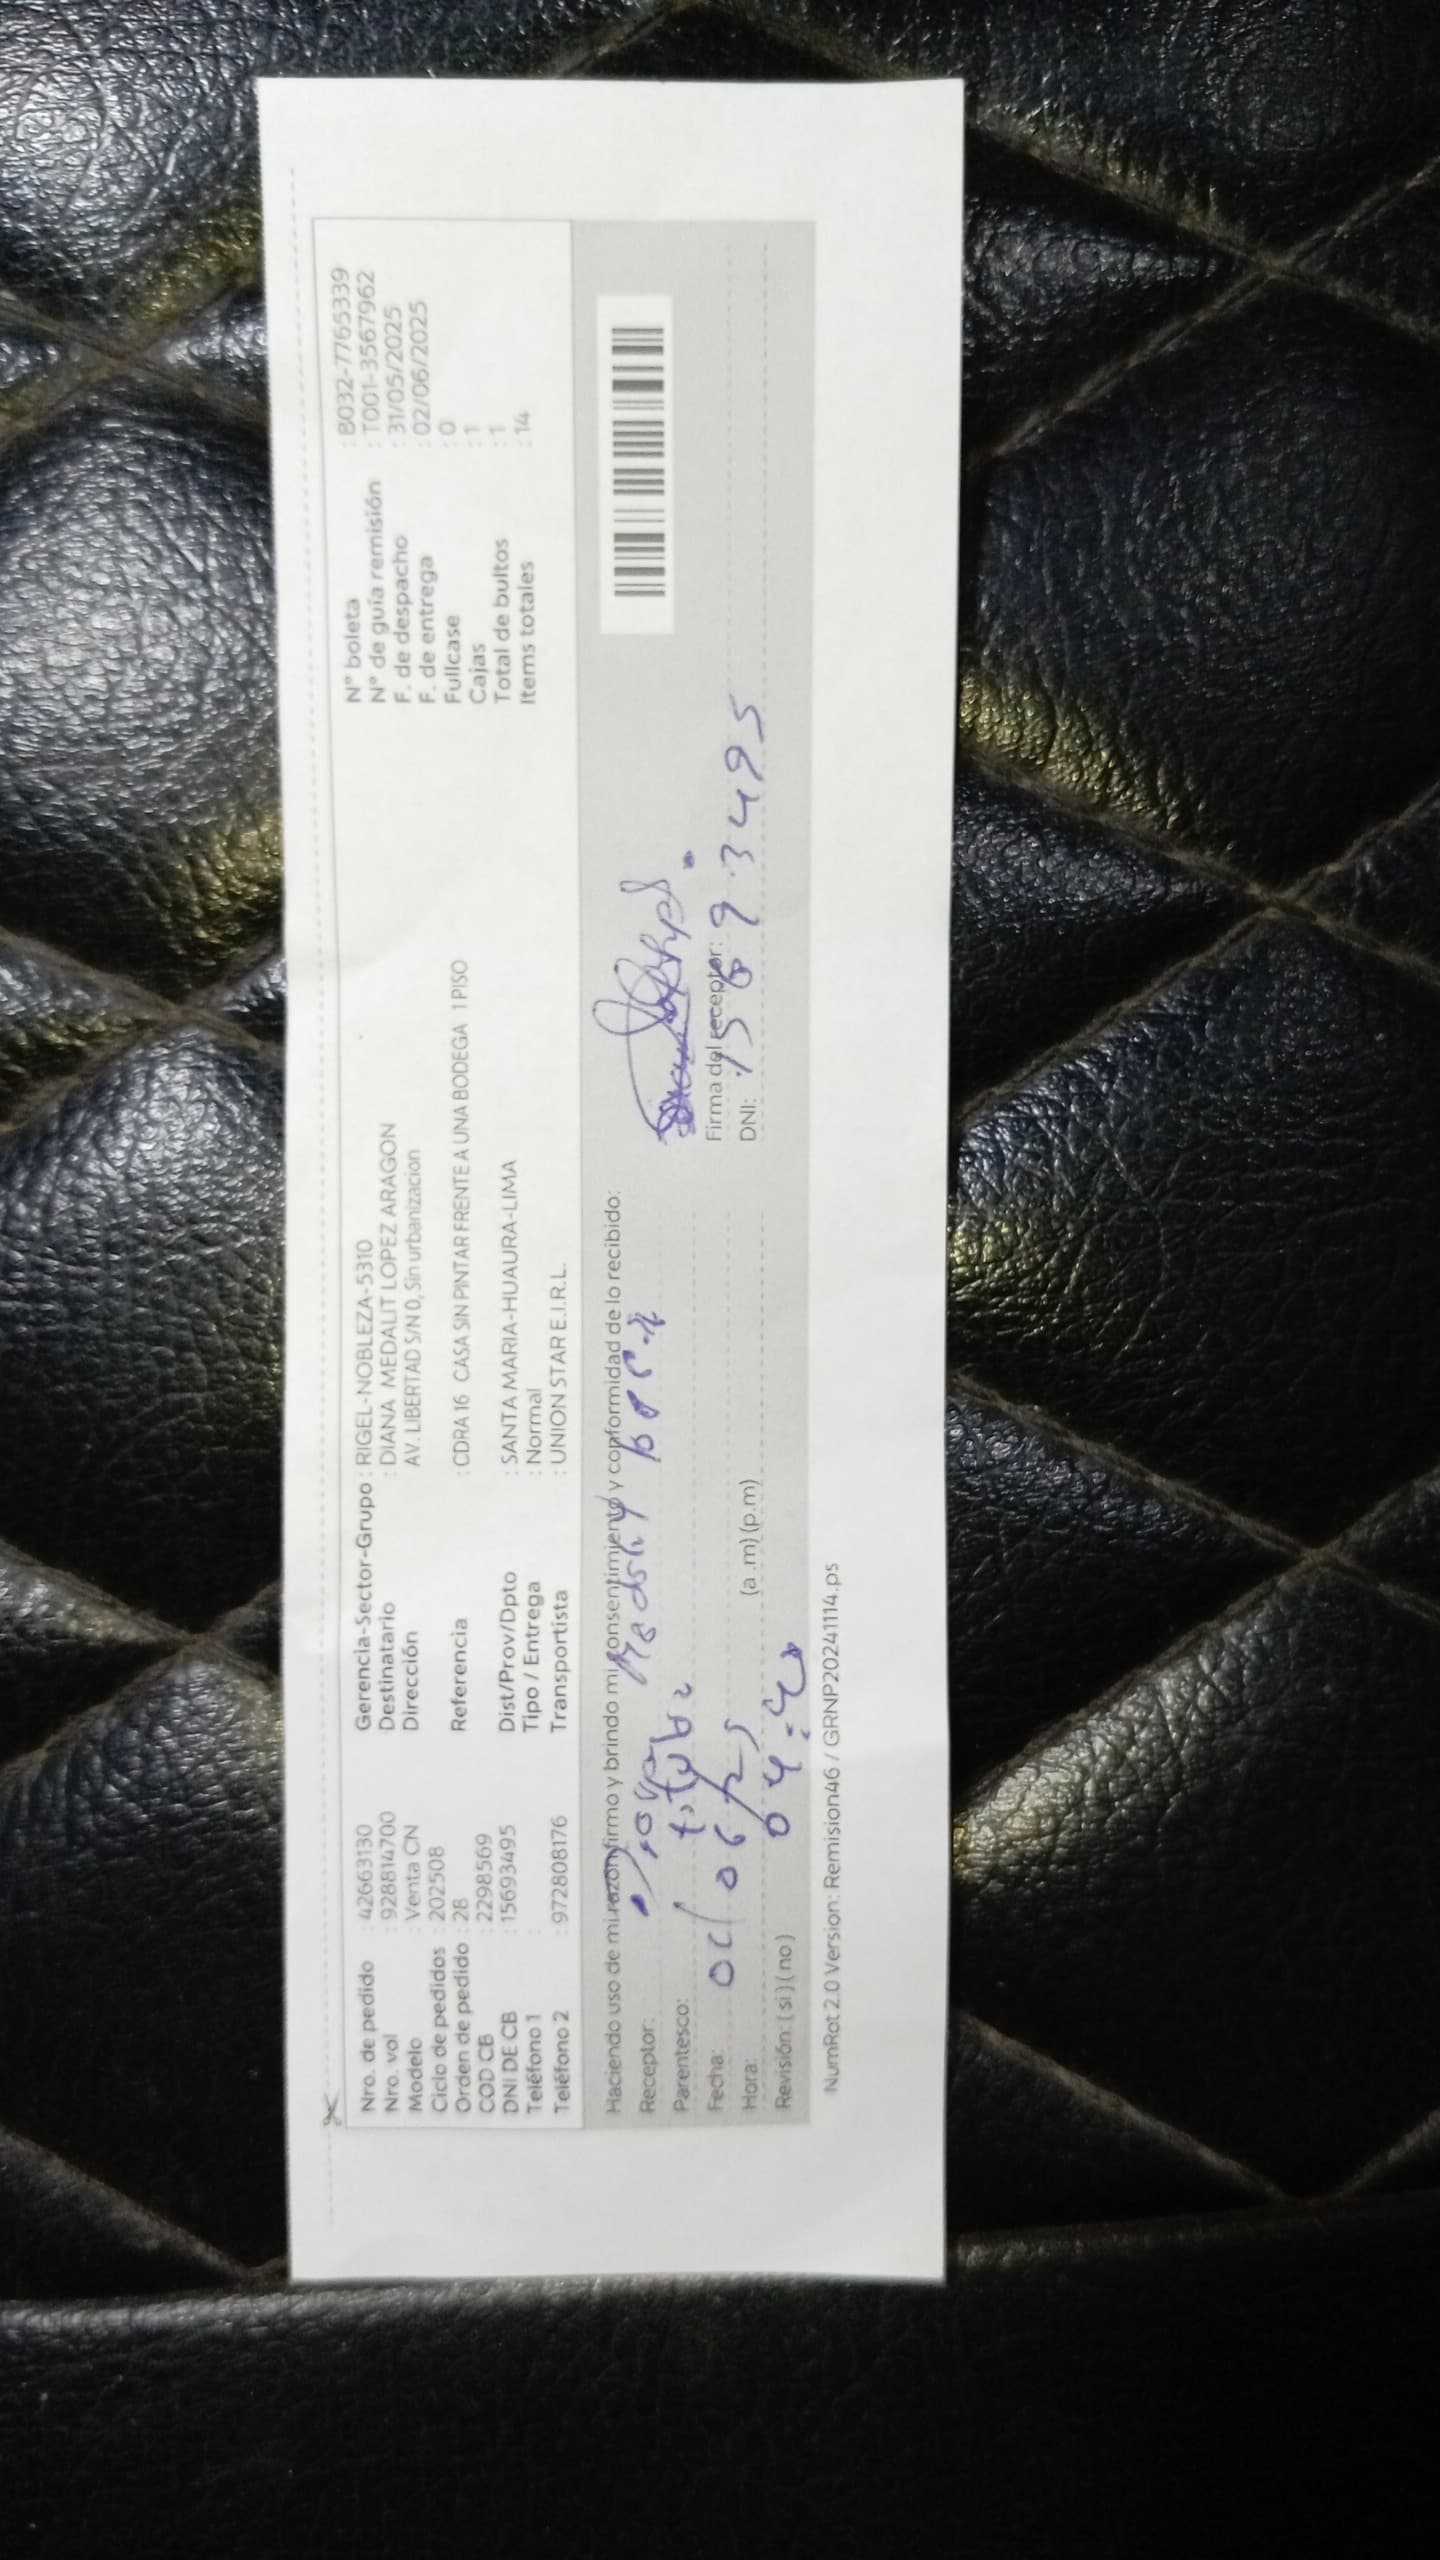 Nro. de pedido : 42663130 Gerencia-Sector-Grupo : RIGEL-NOBLEZA-5310 N° boleta : B032-7765339
Nro. vol : 928814700 Destinatario : DIANA MEDALIT LOPEZ ARAGON N° de guía remisión : T001-3567962
Modelo : Venta CN Dirección AV. LIBERTAD S/N 0, Sin urbanizacion F. de despacho : 31/05/2025
Ciclo de pedidos : 202508 F. de entrega : 02/06/2025
Orden de pedido : 28 Referencia : CDRA 16 CASA SIN PINTAR FRENTE A UNA BODEGA 1 PISO Fullcase : 0
COD CB : 2298569 Cajas : 1
DNI DE CB : 15693495 Dist/Prov/Dpto : SANTA MARIA-HUAURA-LIMA Total de bultos : 1
Teléfono 1 : Tipo / Entrega : Normal Items totales : 14
Teléfono 2 : 972808176 Transportista : UNION STAR E.I.R.L.
Haciendo uso de mi razón firmo y brindo mi consentimiento y conformidad de lo recibido:
Receptor:
Parentesco:
Fecha: Firma del receptor:
Hora: (a.m) (p.m) DNI: 15693495
Revisión: ( si ) ( no )
NumRot 2.0 Version: Remision46 / GRNP20241114.ps